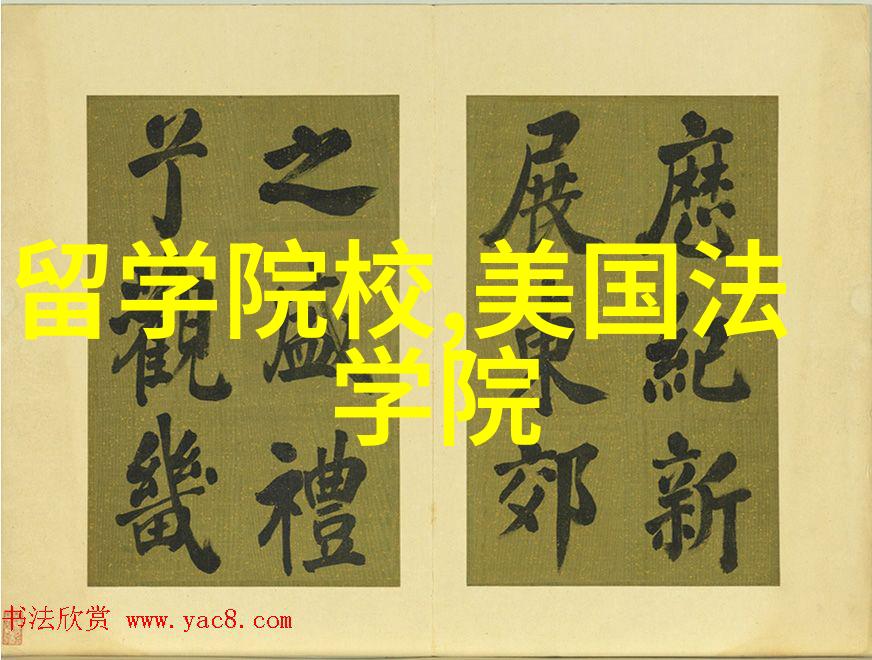 留学院校,美国法
学院
曆紀新
展東郊
之盛禮
觀畿
书法欣赏 www.yac8.com